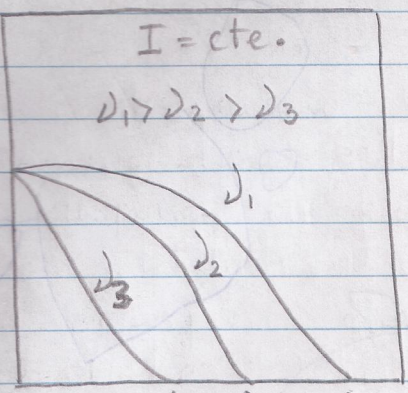 I = cte.
ν₁ > ν₂ > ν₃
ν₁
ν₂
ν₃